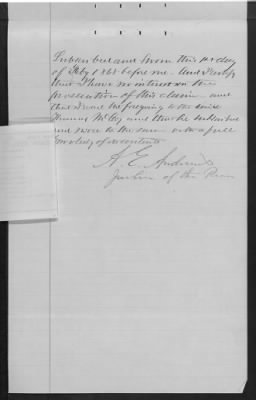 Subscribed and sworn this 1st day
of Feby 1865 before me. And I certify
that I have no interest in the
prosecution of this claim and
that I read the foregoing to the said
Thomas and that he subscribed
and swore to the same with a full
knowledge of its contents
A. E. Andrews
Justice of the Peace